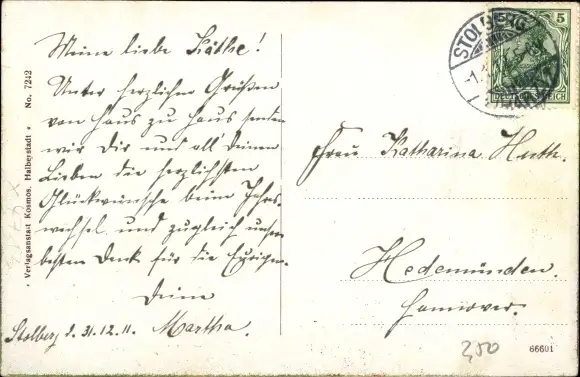 Meine liebe Käthe!
Unter herzlichen Grüßen
von Haus zu Haus senden
wir Dir und all' Deinen
Lieben die herzlichsten
Glückwünsche beim Jahres-
wechsel und zugleich unsern
besten Dank für die Eurigen.
Deine
Martha.
Stolberg d. 31.12.11.
Frau Katharina Huth.
Hedemünden.
Hannover.
STOLBERG
5
DEUTSCHES REICH
• Verlagsanstalt Kosmos, Halberstadt • No. 7242
2,50
66601